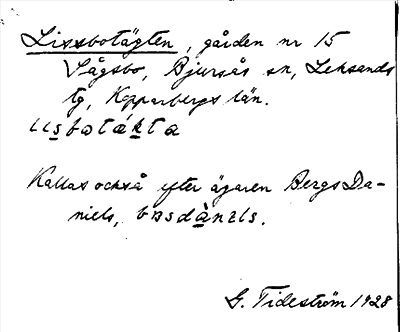 Lissbotägten, gården nr 15
Sågsbo, Bjursås sn, Leksands
tg, Kopparbergs län.
lisbotákta
Kallas också efter ägaren Bergs Da-
niels, bæsdànɛls.
G. Tideström 1928